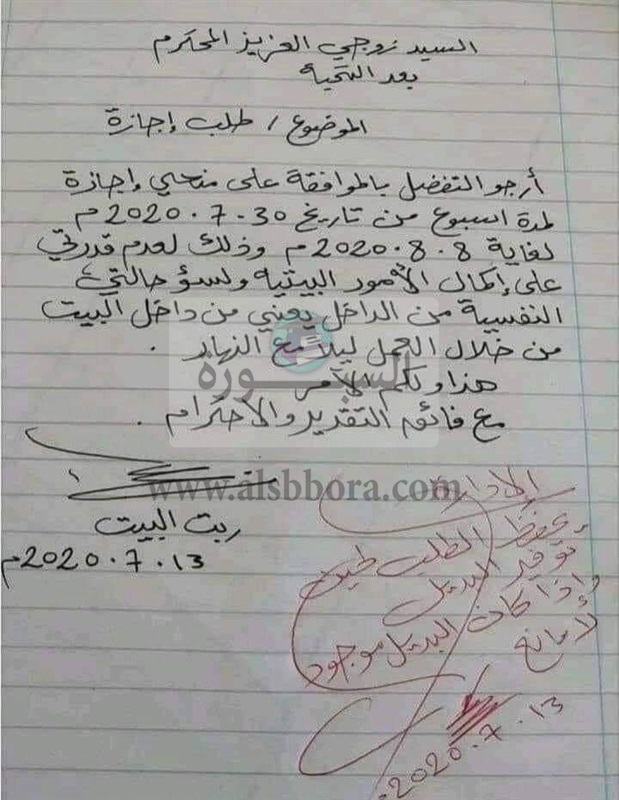 السيد زوجي العزيز المحكرم
بعد التحية
الموضوع / طلب إجازة
أرجو التفضل بالموافقة على منحي إجازة
لمدة اسبوع من تاريخ 30-7-2020م
لغاية 8.8.2020م وذلك لعدم قدرتي
على إكمال الأمور البيتيه ولسؤ حالتي
النفسية من الداخل يعني من داخل البيت
من خلال العمل ليلاً مع النهار .
هذا ولكم الأمر
مع فائق التقدير والاحترام .
السبورة
www.alsbbora.com
ربت البيت
13.7.2020م
الإدارة
يحفظ الطلب لحين
توفير البديل
وإذا كان البديل موجود
لا مانع
13.7.2020